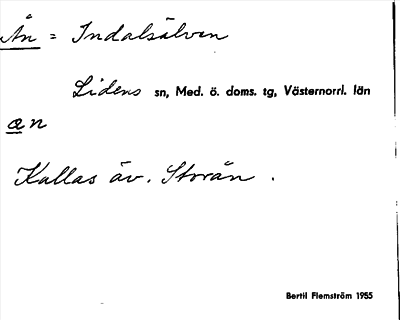 Ån = Indalsälven
Lidens sn, Med. ö. doms. tg, Västernorrl. län
an
Kallas äv. Storån .
Bertil Flemström 1955